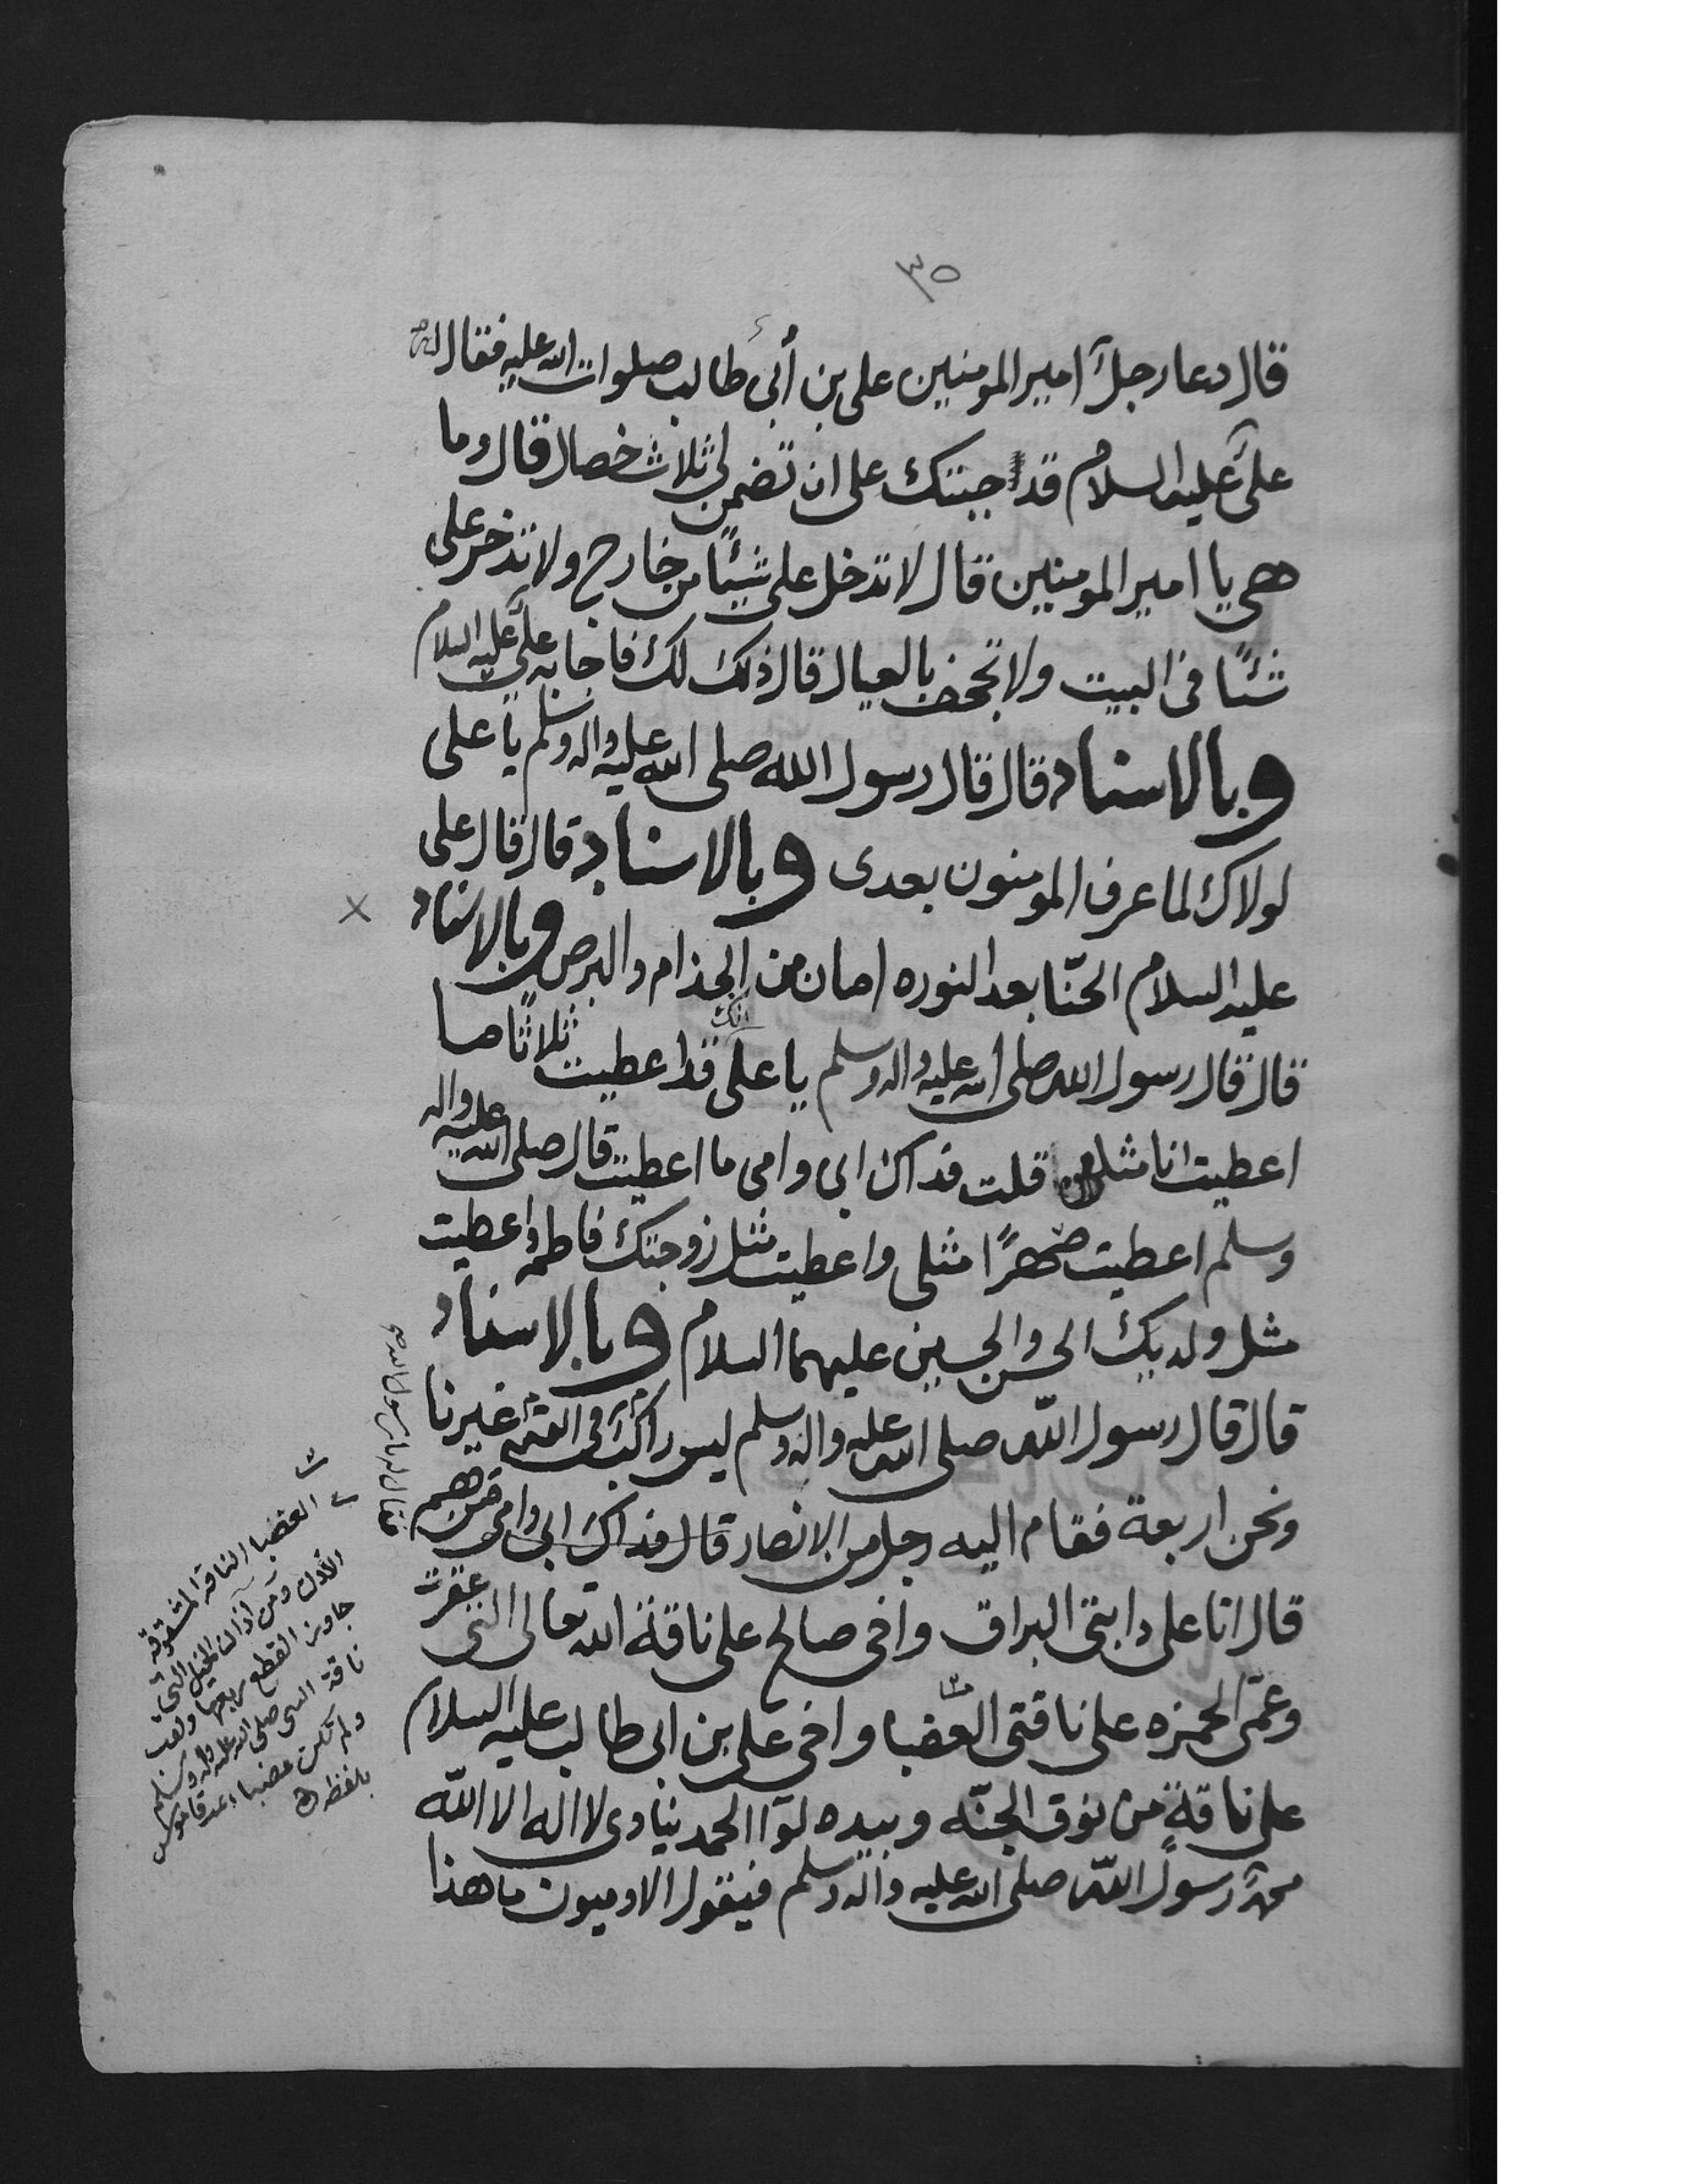 ٣٥
قال دعا رجل امير المومنين على بن أبى طالب صلوات الله عليه فقال له
على عليه السلام قد اجبتك على ان تضمن لى ثلاث خصال قال وما
هى يا امير المومنين قال لا تدخل على شيئًا من خارج ولا تدخر على
شئًا فى البيت ولا تجحف بالعيال قال ذلك لك فاجابه على عليه السلام
وبالاسناد قال قال رسول الله صلى الله عليه واله وسلم يا على
لولاك لما عرف المومنون بعدى وبالاسناد قال قال على
عليه السلام الحنّا بعد النوره امان من الجذام والبرص وبالاسناد
قال قال رسول الله صلى الله عليه واله وسلم يا على انك قد اعطيت ثلاثًا ما
اعطيت انا مثلهن قلت فداك ابى وامى ما اعطيت قال صلى الله عليه واله
وسلم اعطيت صهرًا مثلى واعطيت مثل زوجتك فاطمه واعطيت
مثل ولديك الحسن والحسين عليهما السلام وبالاسناد
قال قال رسول الله صلى الله عليه واله وسلم ليس راكب فى القيمة غيرنا
ونحن اربعة فقام اليه رجل من الانصار قال فداك ابى وامى من هم
قال انا على دابتى البراق واخى صالح على ناقة الله تعالى التى عقرت
وعمّى الحمزه على ناقتى العضبا واخى على بن ابى طالب عليه السلام
على ناقةٍ من نوق الجنّه وبيده لوآ الحمد ينادى لا اله الا الله
محمد رسول الله صلى الله عليه واله وسلم فيقول الادميون ما هذا
فقال له يا رسول الله
العضبا الناقة المشقوقة
الأذن ومن آذان الخيل التى
جاوز القطع ربعها ولقب
ناقة النبى صلى الله عليه واله وسلم
ولم تكن عضبا قاموس
بلفظه